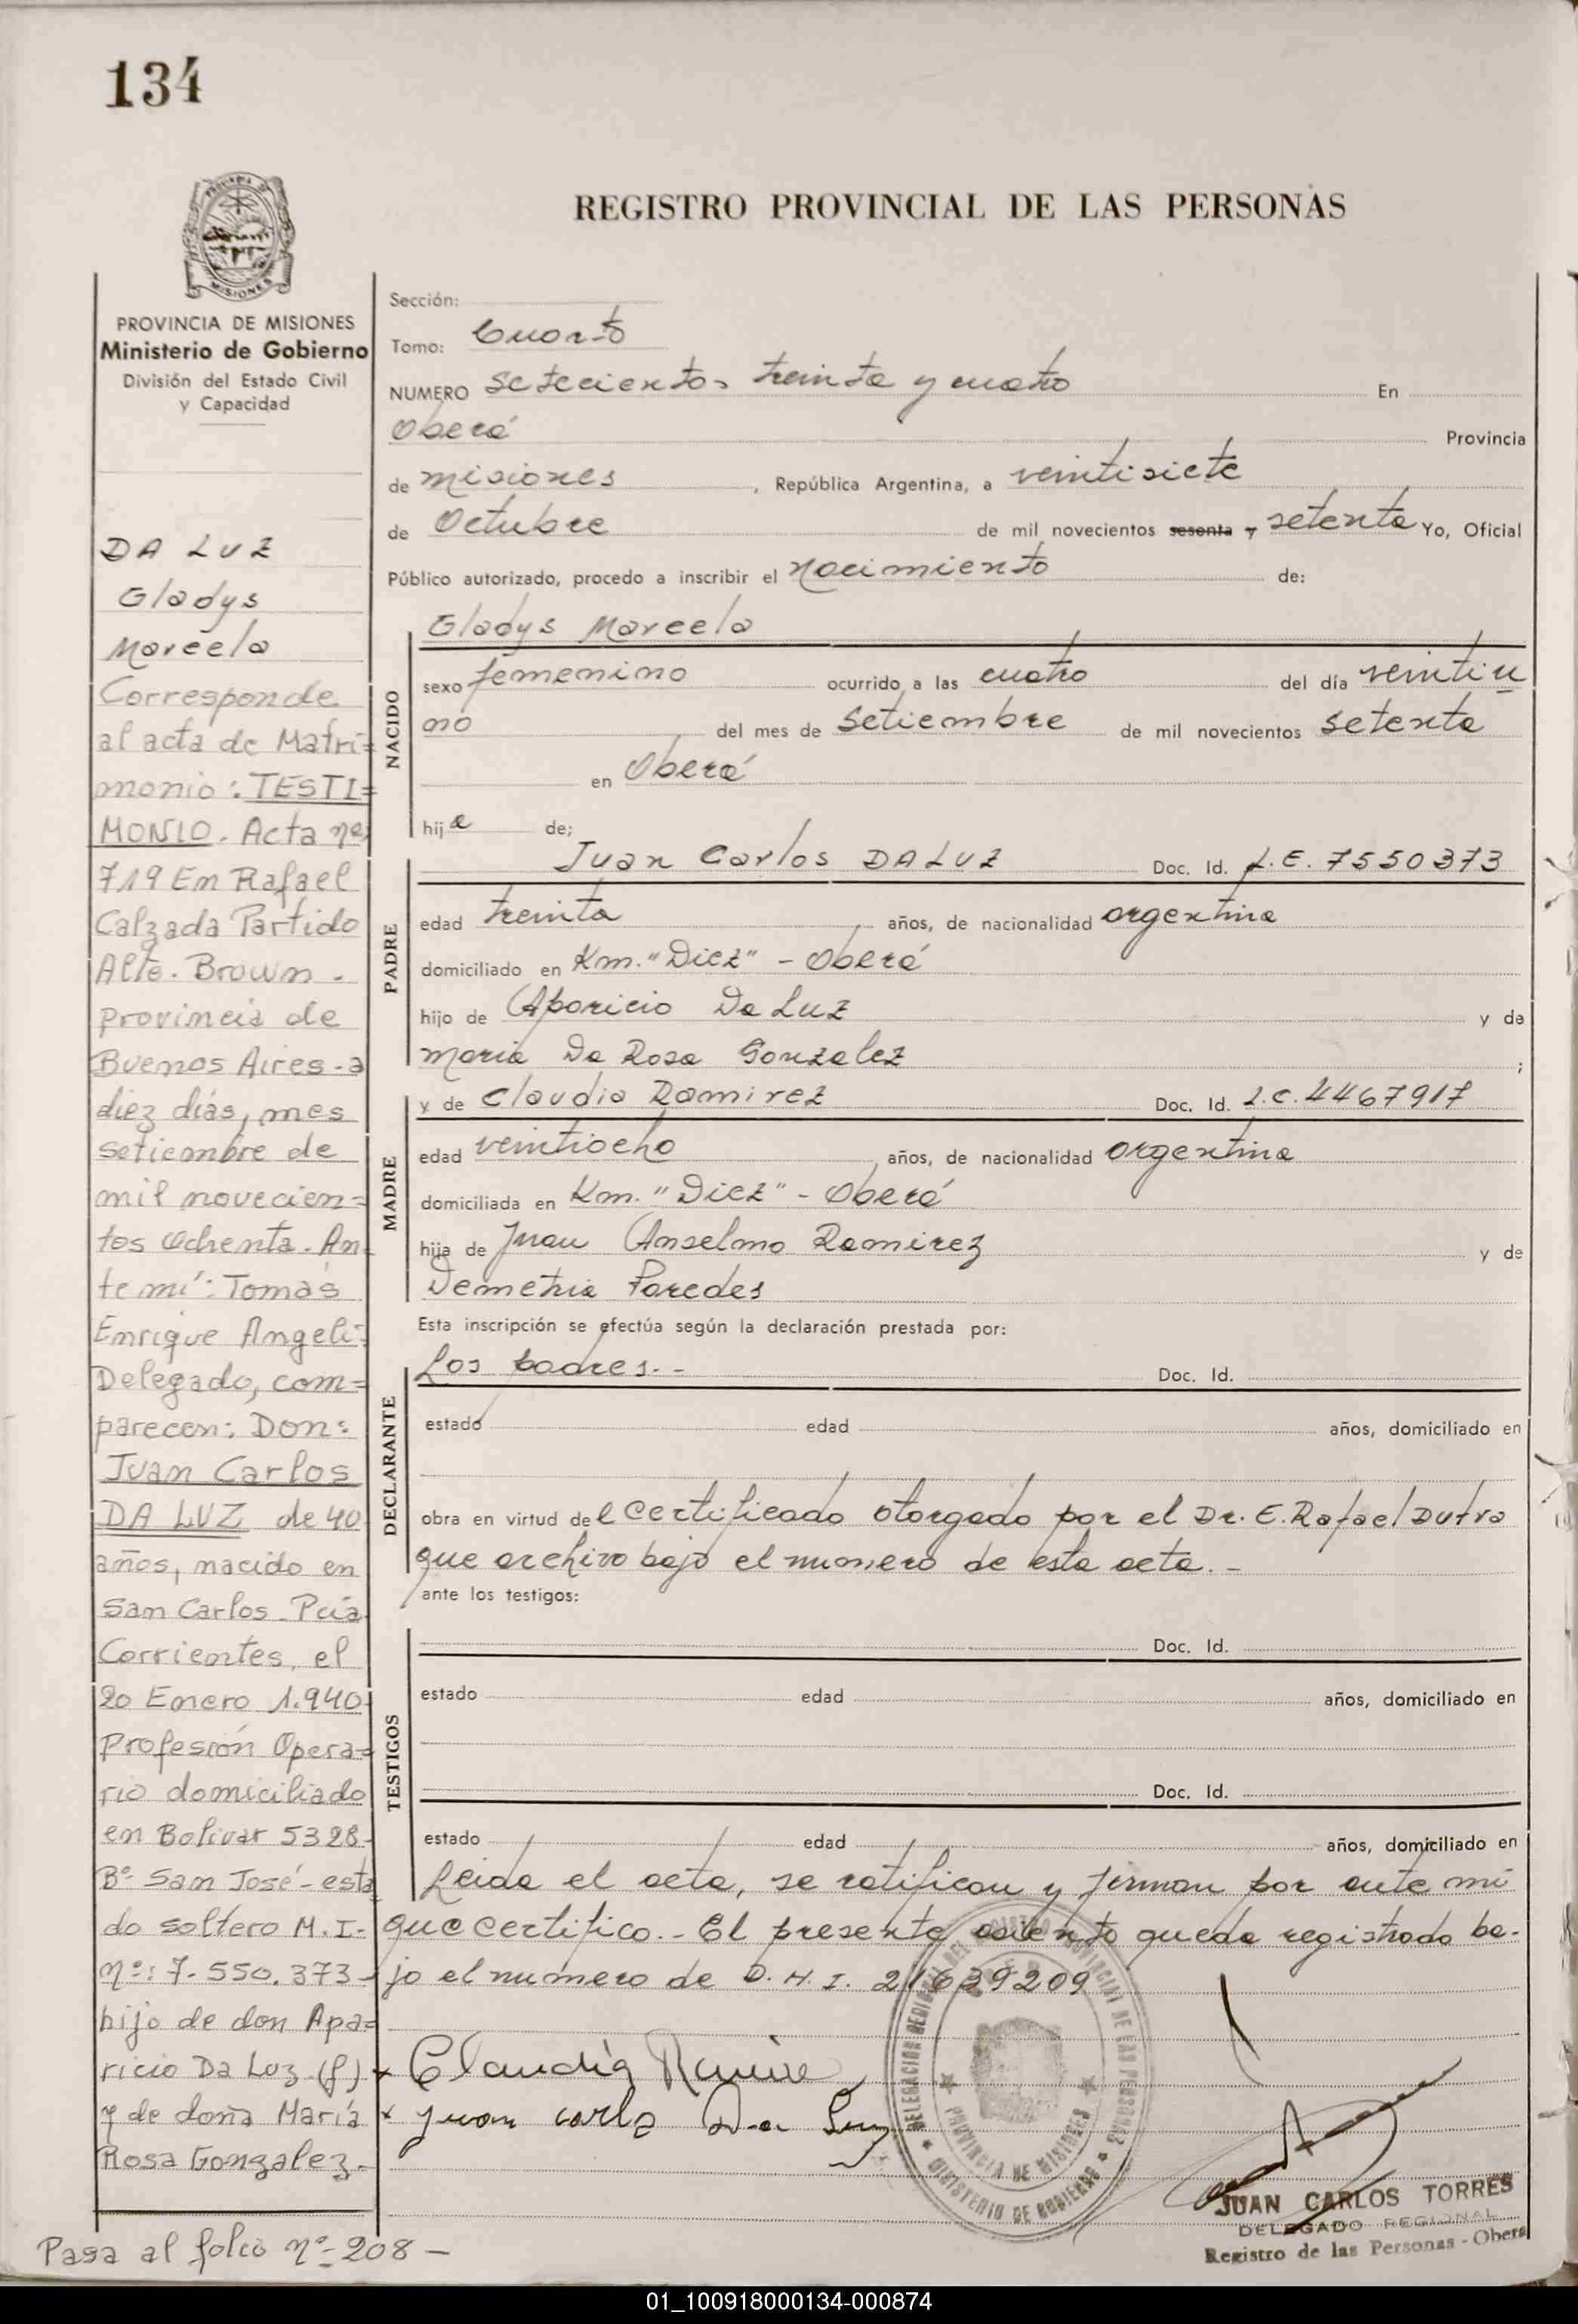 134
PROVINCIA DE
MISIONES
REGISTRO PROVINCIAL DE LAS PERSONAS
PROVINCIA DE MISIONES
Ministerio de Gobierno
División del Estado Civil
y Capacidad
DA LUZ
Gladys
Marcela
Corresponde
al acta de Matri=
monio: TESTI=
MONIO. Acta nº
719 En Rafael
Calzada Partido
Alte. Brown -
provincia de
Buenos Aires - a
diez días, mes
setiembre de
mil novecien=
tos ochenta. An=
te mí: Tomás
Enrique Angeli=
Delegado, com=
parecen: Don:
Juan Carlos
DA LUZ de 40
años, nacido en
San Carlos - Pcia
Corrientes, el
20 Enero 1.940
Profesión Opera=
rio domiciliado
en Bolivar 5328-
Bº San José - esta
do soltero M.I-
nº: 7.550.373-
hijo de don Apa=
ricio Da Luz (f)
y de doña María
Rosa Gonzalez.-
Pasa al folio nº 208 -
Sección:
Tomo: Cuarto
NUMERO setecientos treinta y cuatro En
Oberá Provincia
de misiones, República Argentina, a veintisiete
de Octubre de mil novecientos sesenta y setenta Yo, Oficial
Público autorizado, procedo a inscribir el nacimiento de:
NACIDO
Gladys Marcela
sexo femenino ocurrido a las cuatro del día veintiu
no del mes de setiembre de mil novecientos setenta
en Oberá
hija de;
PADRE
Juan Carlos DA LUZ Doc. Id. L.E. 7550373
edad treinta años, de nacionalidad argentina
domiciliado en Km. "Diez" - Oberá
hijo de Aparicio Da Luz y de
maria Da Rosa Gonzalez ;
MADRE
y de Claudia Ramirez Doc. Id. L.C. 4467917
edad veintiocho años, de nacionalidad argentina
domiciliada en Km. "Diez" - Oberá
hija de Juan Anselmo Ramirez y de
Demetria Paredes
Esta inscripción se efectúa según la declaración prestada por:
DECLARANTE
Los padres.- Doc. Id.
estado edad años, domiciliado en
obra en virtud del certificado otorgado por el Dr. E. Rafael Dutra
que archivo bajo el numero de esta acta.-
ante los testigos:
TESTIGOS
Doc. Id.
estado edad años, domiciliado en
Doc. Id.
estado edad años, domiciliado en
Leida el acta, se ratifican y firman por ante mi
que certifico.- El presente asiento queda registrado ba-
jo el numero de D.N.I. 21639209
Claudia Ramire
Juan carlo Da Luz
PROVINCIA DE MISIONES
MINISTERIO DE GOBIERNO
JUAN CARLOS TORRES
DELEGADO REGIONAL
Registro de las Personas - Obera
01_100918000134-000874